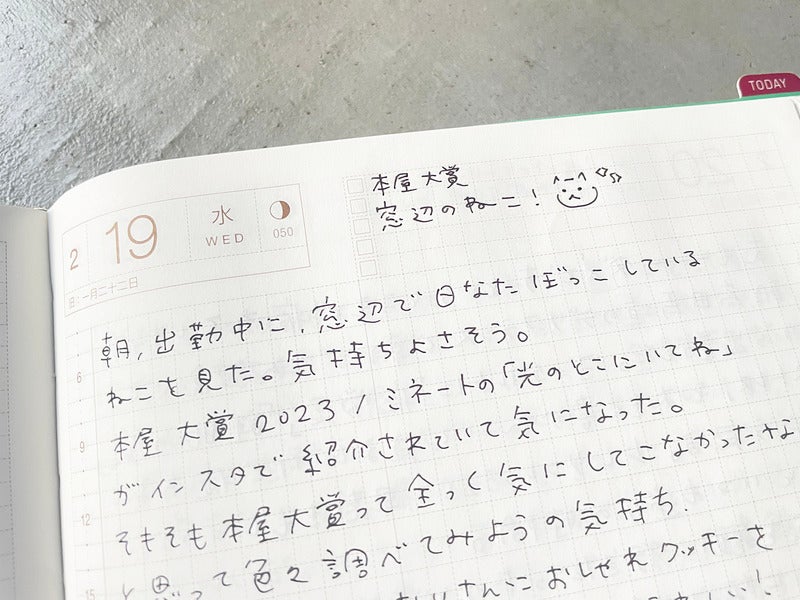 TODAY
2 19 水 WED 050
旧:一月二十二日
本屋大賞
窓辺のねこ!
朝、出勤中に、窓辺で日なたぼっこしている
6
ねこを見た。気持ちよさそう。
本屋大賞2023ノミネートの「光のとこにいてね」
9
がインスタで紹介されていて気になった。
そもそも本屋大賞って全っく気にしてこなかったな
12
と思って色々調べてみようの気持ち.
15
さんにおしゃれクッキーを